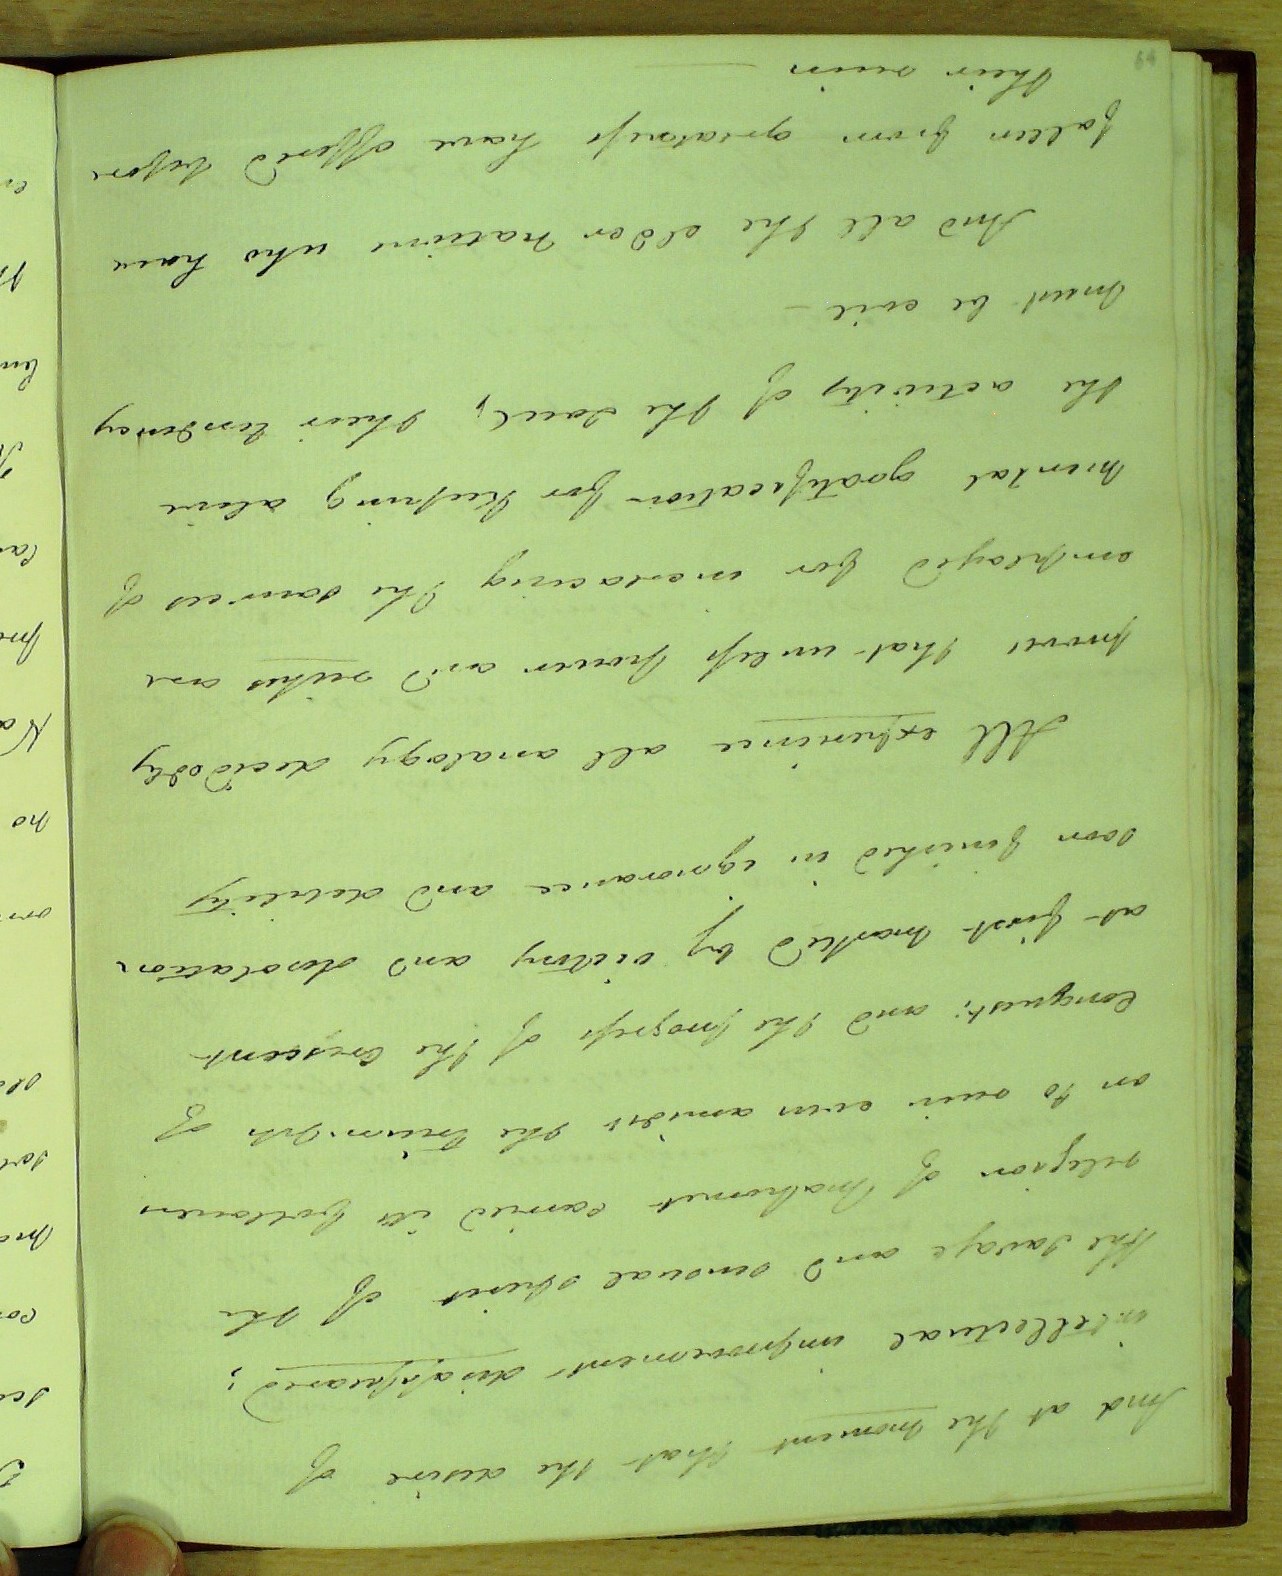 And at the moment that the desire of
intellectual improvement disappeared;
the savage and sensual spirit of the
religion of Mahomet carried its followers
on to ruin even amidst the triumphs of
Conquest; and the progress of the Crescent
at first marked by victory and desolation
soon finished in ignorance and debility
All experience all analogy decidedly
proves that unless power and riches are
employed for increasing the sources of
mental gratification for keeping alive
the activity of the soul, their tendency
must be evil –
And all the older nations who have
fallen from greatness have offered before
their ruin
64